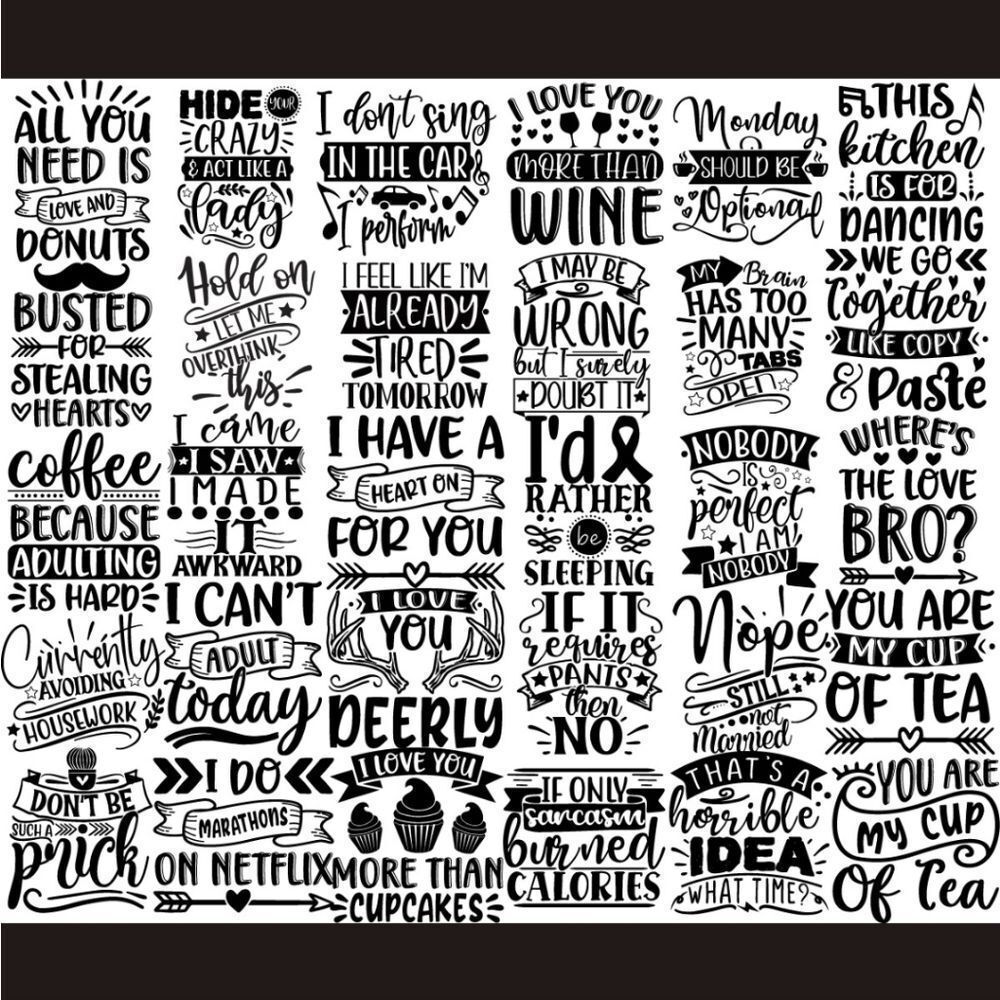 ALL YOU
NEED IS
LOVE AND
DONUTS
BUSTED
FOR
STEALING
HEARTS
coffee
BECAUSE
ADULTING
IS HARD
Currently
AVOIDING
HOUSEWORK
DON'T BE
SUCH A
prick
HIDE YOUR
CRAZY
& ACT LIKE A
lady
Hold on
LET ME
OVERTHINK
this
I came
I SAW
I MADE
IT
AWKWARD
I CAN'T
ADULT
today
I DO
MARATHONS
ON NETFLIX
I don't sing
IN THE CAR
I perform
I FEEL LIKE I'M
ALREADY
TIRED
TOMORROW
I HAVE A
HEART ON
FOR YOU
I LOVE
YOU
DEERLY
I LOVE YOU
MORE THAN
CUPCAKES
I LOVE YOU
MORE THAN
WINE
I MAY BE
WRONG
but I surely
DOUBT IT
I'd
RATHER
be
SLEEPING
IF IT
requires
PANTS
then
NO
IF ONLY
sarcasm
burned
CALORIES
Monday
SHOULD BE
Optional
MY Brain
HAS TOO
MANY
TABS
OPEN
NOBODY
IS
perfect
I AM
NOBODY
Nope
STILL
not
Married
THAT'S A
horrible
IDEA
WHAT TIME?
THIS
kitchen
IS FOR
DANCING
WE GO
Together
LIKE COPY
& Paste
WHERE'S
THE LOVE
BRO?
YOU ARE
MY CUP
OF TEA
YOU ARE
MY CUP
Of Tea